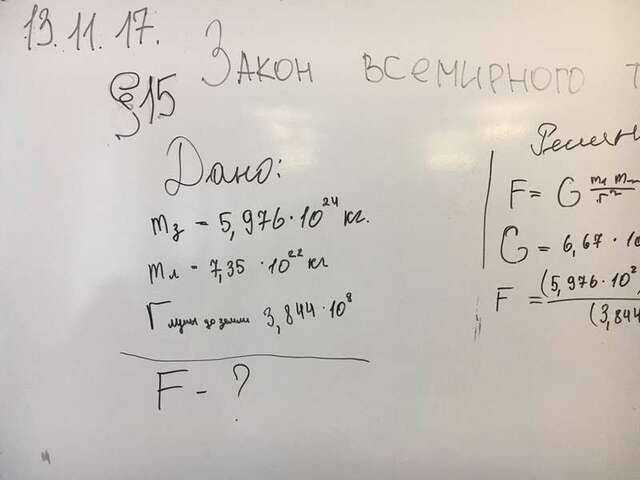 13.11.17.
§15
Закон всемирного т
Дано:
mз = 5,976·10²⁴ кг.
mл = 7,35 ·10²² кг
r луны до земли 3,844·10⁸
F - ?
Решени
F = G
G = 6,67 · 10
F = (5,976·10²
(3,844